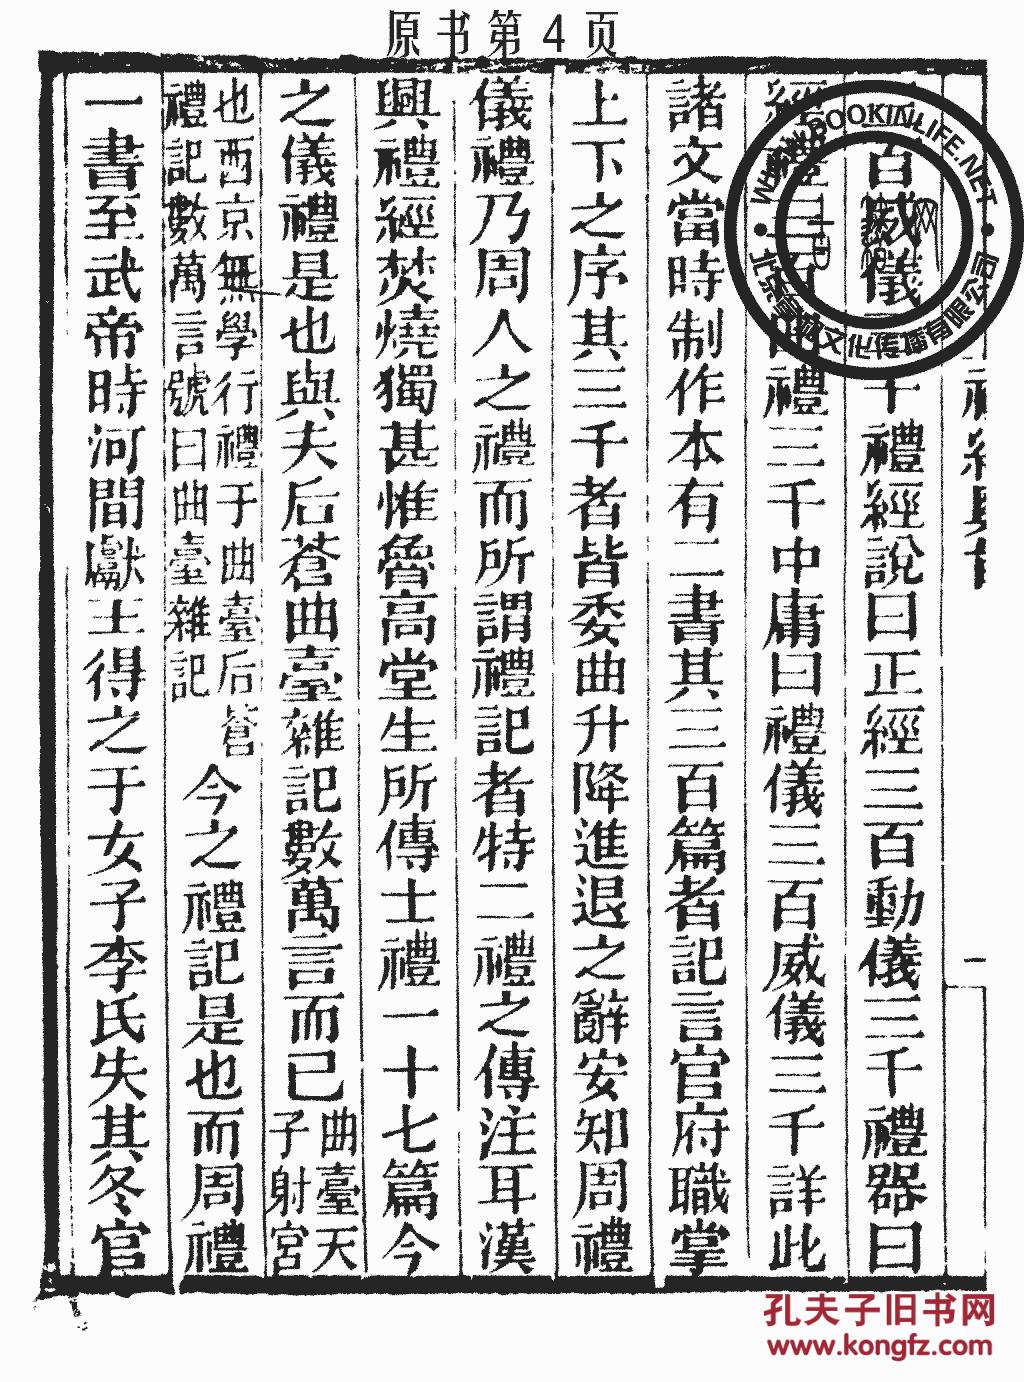 原书第4页
百威儀三千禮經說曰正經三百動儀三千禮器曰
經禮三百曲禮三千中庸曰禮儀三百威儀三千詳此
諸文當時制作本有二書其三百篇者記言官府職掌
上下之序其三千者皆委曲升降進退之辭安知周禮
儀禮乃周人之禮而所謂禮記者特二禮之傳注耳漢
興禮經焚燒獨甚惟魯高堂生所傳士禮一十七篇今
之儀禮是也與夫后蒼曲臺雜記數萬言而已曲臺天子射宮
也西京無學行禮于曲臺后蒼
禮記數萬言號曰曲臺雜記
今之禮記是也而周禮
一書至武帝時河間獻王得之于女子李氏失其冬官
一
WWW.BOOKINLIFE.NET
网
北京 文化传播有限公司
孔夫子旧书网
www.kongfz.com